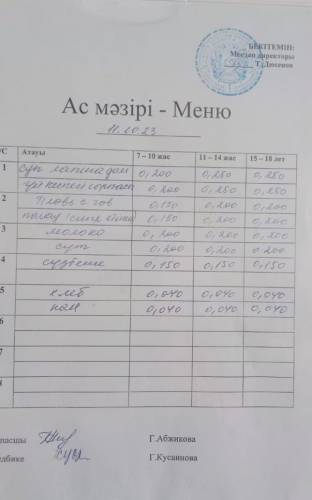 БЕКІТЕМІН:
Мектеп директоры
Т. Дюсенов
Ас мәзірі - Меню
11.10.23
Р/С Атауы 7 – 10 жас 11 – 14 жас 15 – 18 лет
1 Суп лапша дом 0,200 0,250 0,250
үй кеспе сорпасы 0,200 0,250 0,250
2 Плов с гов 0,150 0,200 0,200
палау 0,150 0,200 0,200
3 молоко 0,200 0,200 0,200
сүт 0,200 0,200 0,200
4 0,150 0,150 0,150
5 хлеб 0,040 0,040 0,040
нан 0,040 0,040 0,040
6
7
8
Г.Абжикова
Г.Кусаинова